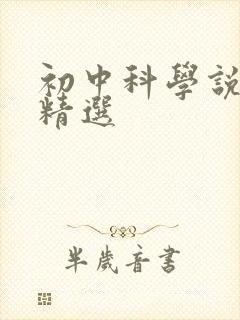 初中科學說
精選
半歲音書